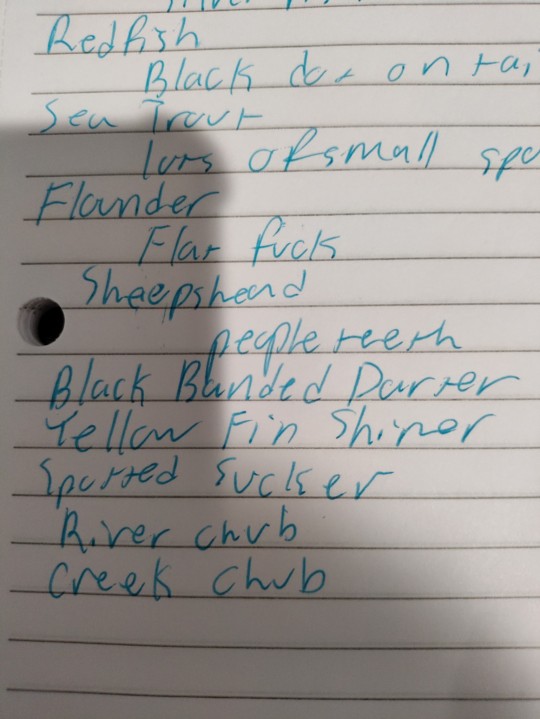 Redfish
Black dot on tai
Sea Trout
lots of small spo
Flounder
Flat fuck
Sheepshead
people teeth
Black Banded Darter
Yellow Fin Shiner
Spotted Sucker
River chub
Creek Chub